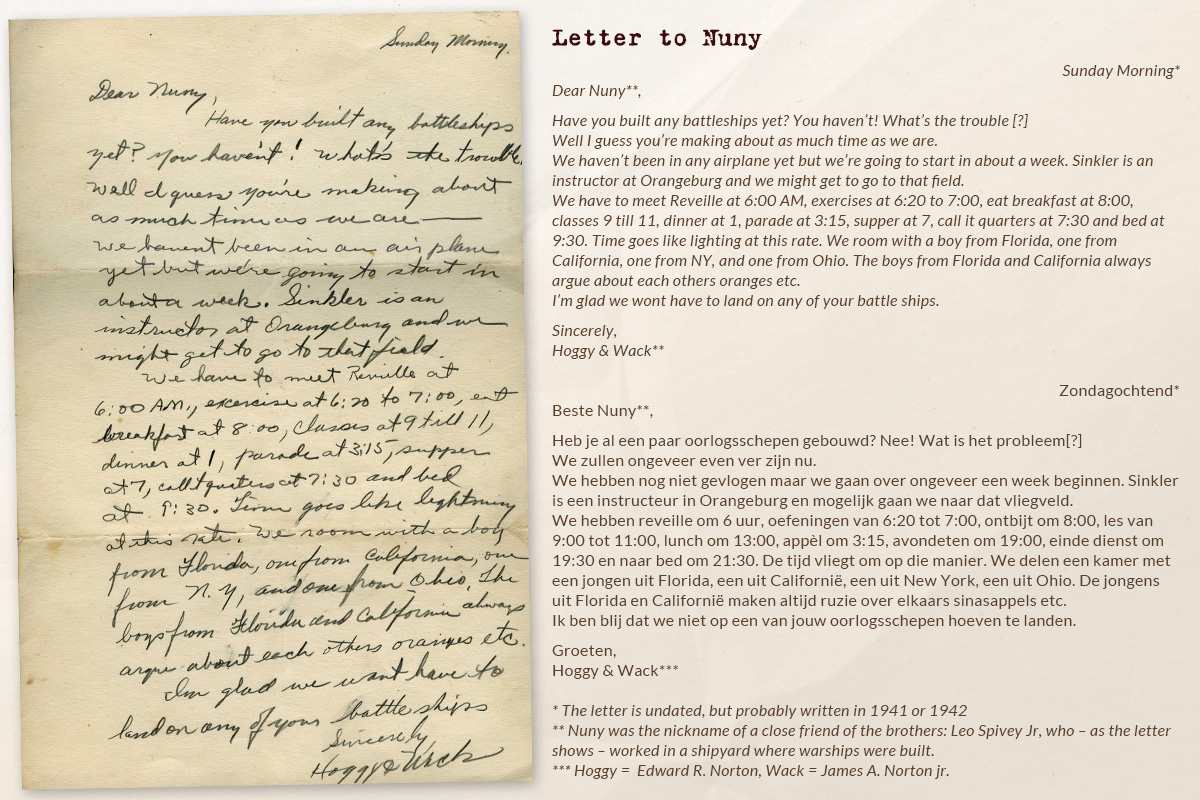 Sunday Morning.
Dear Nuny,
Have you built any battleships
yet? You haven't! What's the trouble.
Well I guess you're making about
as much time as we are —
We havent been in an air plane
yet but we're going to start in
about a week. Sinkler is an
instructor at Orangeburg and we
might get to go to that field.
We have to meet Reville at
6:00 AM., exercise at 6:20 to 7:00, eat
breakfast at 8:00, classes at 9 till 11,
dinner at 1, parade at 3:15, supper
at 7, call t quarters at 7:30 and bed
at 9:30. Time goes like lightning
at this rate. We room with a boy
from Florida, one from California, one
from N.Y, and one from Ohio, The
boys from Florida and California always
argue about each others oranges etc.
Im glad we wont have to
land on any of your battle ships
Sincerely
Hoggy & Wack
Letter to Nuny
Sunday Morning*
Dear Nuny**,
Have you built any battleships yet? You haven't! What's the trouble [?]
Well I guess you're making about as much time as we are.
We haven't been in any airplane yet but we're going to start in about a week. Sinkler is an
instructor at Orangeburg and we might get to go to that field.
We have to meet Reveille at 6:00 AM, exercises at 6:20 to 7:00, eat breakfast at 8:00,
classes 9 till 11, dinner at 1, parade at 3:15, supper at 7, call it quarters at 7:30 and bed at
9:30. Time goes like lighting at this rate. We room with a boy from Florida, one from
California, one from NY, and one from Ohio. The boys from Florida and California always
argue about each others oranges etc.
I'm glad we wont have to land on any of your battle ships.
Sincerely,
Hoggy & Wack**
Zondagochtend*
Beste Nuny**,
Heb je al een paar oorlogsschepen gebouwd? Nee! Wat is het probleem[?]
We zullen ongeveer even ver zijn nu.
We hebben nog niet gevlogen maar we gaan over ongeveer een week beginnen. Sinkler
is een instructeur in Orangeburg en mogelijk gaan we naar dat vliegveld.
We hebben reveille om 6 uur, oefeningen van 6:20 tot 7:00, ontbijt om 8:00, les van
9:00 tot 11:00, lunch om 13:00, appèl om 3:15, avondeten om 19:00, einde dienst om
19:30 en naar bed om 21:30. De tijd vliegt om op die manier. We delen een kamer met
een jongen uit Florida, een uit Californië, een uit New York, een uit Ohio. De jongens
uit Florida en Californië maken altijd ruzie over elkaars sinasappels etc.
Ik ben blij dat we niet op een van jouw oorlogsschepen hoeven te landen.
Groeten,
Hoggy & Wack***
* The letter is undated, but probably written in 1941 or 1942
** Nuny was the nickname of a close friend of the brothers: Leo Spivey Jr, who – as the letter
shows – worked in a shipyard where warships were built.
*** Hoggy = Edward R. Norton, Wack = James A. Norton jr.